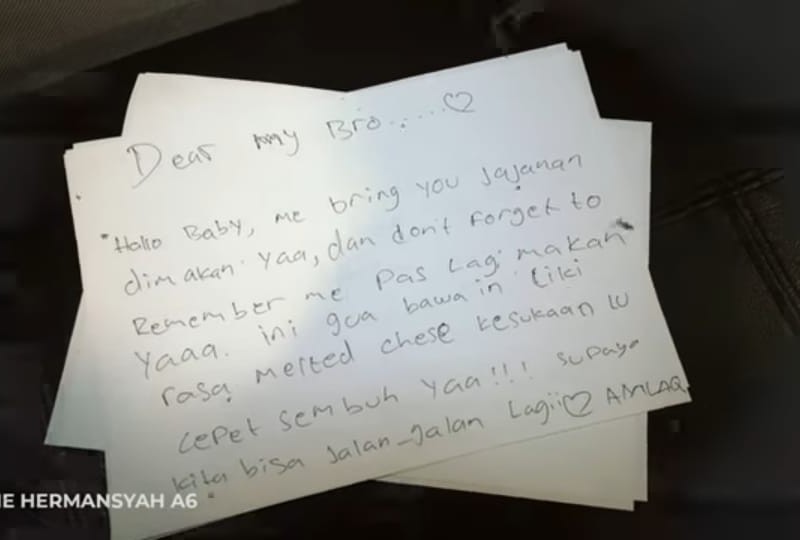 Dear my Bro......♡
"Hallo Baby, me bring you Jajanan
dimakan yaa, dan don't forget to
Remember me pas Lagi makan
Yaaa. ini gua bawain Liki
rasa melted chese kesukaan lu
cepet sembuh yaa!!! supaya
kita bisa Jalan-Jalan Lagii♡
IE HERMANSYAH A6